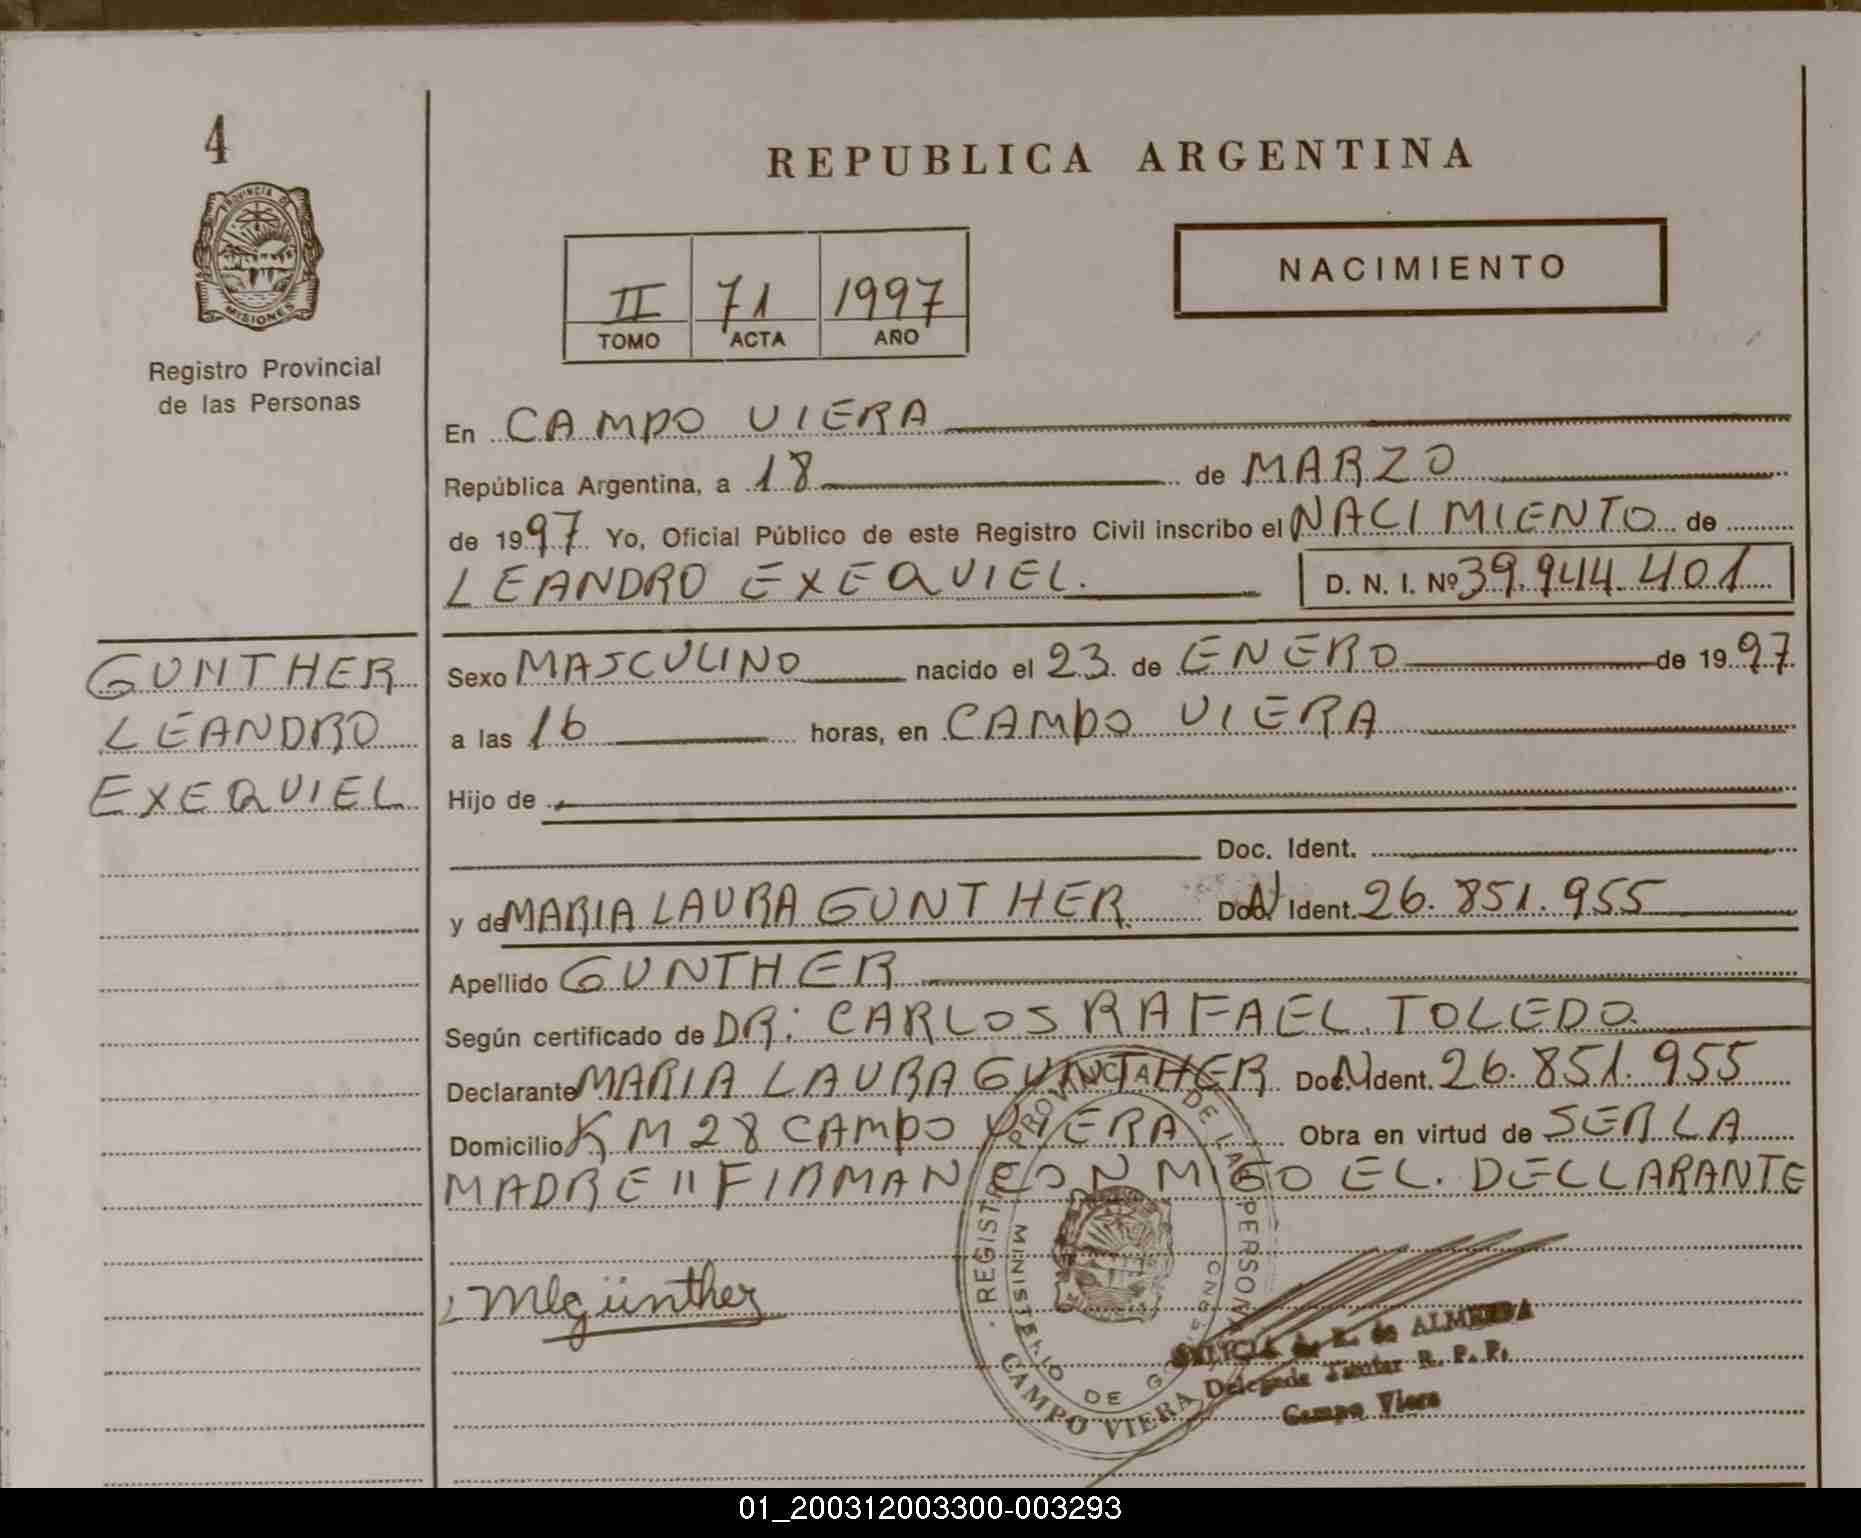 4
PROVINCIA DE
MISIONES
Registro Provincial
de las Personas
REPUBLICA ARGENTINA
II 71 1997
TOMO ACTA AÑO
NACIMIENTO
En CAMPO VIERA
República Argentina, a 18 de MARZO
de 1997 Yo, Oficial Público de este Registro Civil inscribo el NACIMIENTO de
LEANDRO EXEQUIEL. D. N. I. Nº 39.944.401
GUNTHER
LEANDRO
EXEQUIEL
Sexo MASCULINO nacido el 23 de ENERO de 1997
a las 16 horas, en CAMPO VIERA
Hijo de
Doc. Ident.
y de MARIA LAURA GUNTHER. Doc. N Ident. 26.851.955
Apellido GUNTHER
Según certificado de DR: CARLOS RAFAEL TOLEDO
Declarante MARIA LAURA GUNTHER Doc. N Ident. 26.851.955
Domicilio KM 28 CAMPO VIERA Obra en virtud de SER LA
MADRE II FIRMAN CON MIGO EL. DECLLARANTE
MLgünther
PROVINCIAL DE LAS PERSONAS
REGISTRO
MINISTERIO DE
CAMPO VIERA
de ALMEIDA
Delegada Titular R. P. P.
Campo Viera
01_200312003300-003293